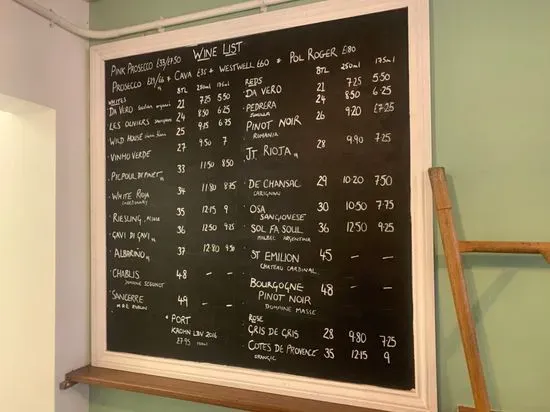 WINE LIST
PINK PROSECCO £33/£7.50
PROSECCO £29/£6 • CAVA £35 • WESTWELL £60 • POL ROGER £80
WHITES BTL 250ml 175ml
DA VERO Sicilian organic 21 7.25 5.50
LES OLIVIERS 24 8.50 6.25
WILD HOUSE 25 9.75 6.75
VINHO VERDE 27 9.50 7
PICPOUL DE PINET 33 11.50 8.50
WHITE RIOJA 34 11.80 8.75
RIESLING 35 12.15 9
GAVI DI GAVI 36 12.50 9.25
ALBARIÑO 37 12.80 9.50
CHABLIS 48 – –
DOMAINE SEGUINOT
SANCERRE 49 – –
• PORT
KROHN LBV 2016
£7.95 100ml
REDS BTL 250ml 175ml
DA VERO 21 7.25 5.50
PEDRERA 24 8.50 6.25
JUMILLA
PINOT NOIR 26 9.20 £7.25
ROMANIA
RIOJA 28 9.90 7.75
DE CHANSAC 29 10.20 7.50
CARIGNAN
OSA 30 10.50 7.75
SANGIOVESE
SOL FA SOUL 36 12.50 9.25
MALBEC ARGENTINA
ST EMILION 45 – –
CHATEAU CARDINAL
BOURGOGNE 48 – –
PINOT NOIR
DOMAINE MASSE
ROSE
GRIS DE GRIS 28 9.80 7.25
COTES DE PROVENCE 35 12.15 9
ORGANIC